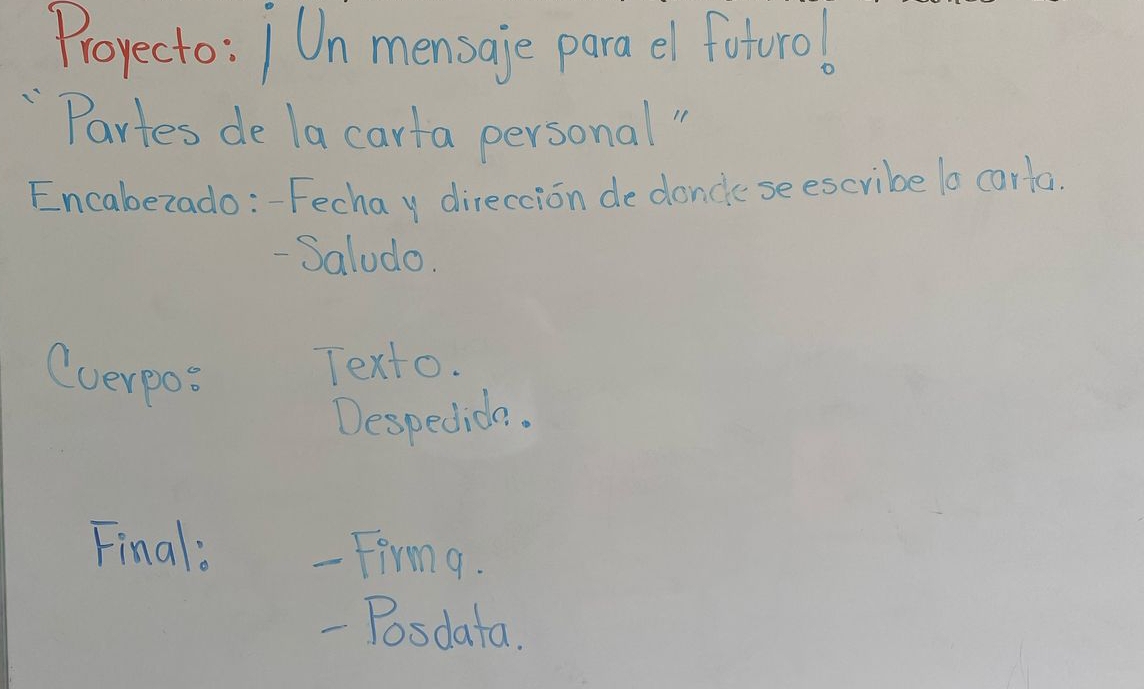 Proyecto: ¡Un mensaje para el futuro!
"Partes de la carta personal"
Encabezado: -Fecha y dirección de donde se escribe la carta.
-Saludo.
Cuerpo: Texto.
Despedida.
Final: -Firma.
-Posdata.